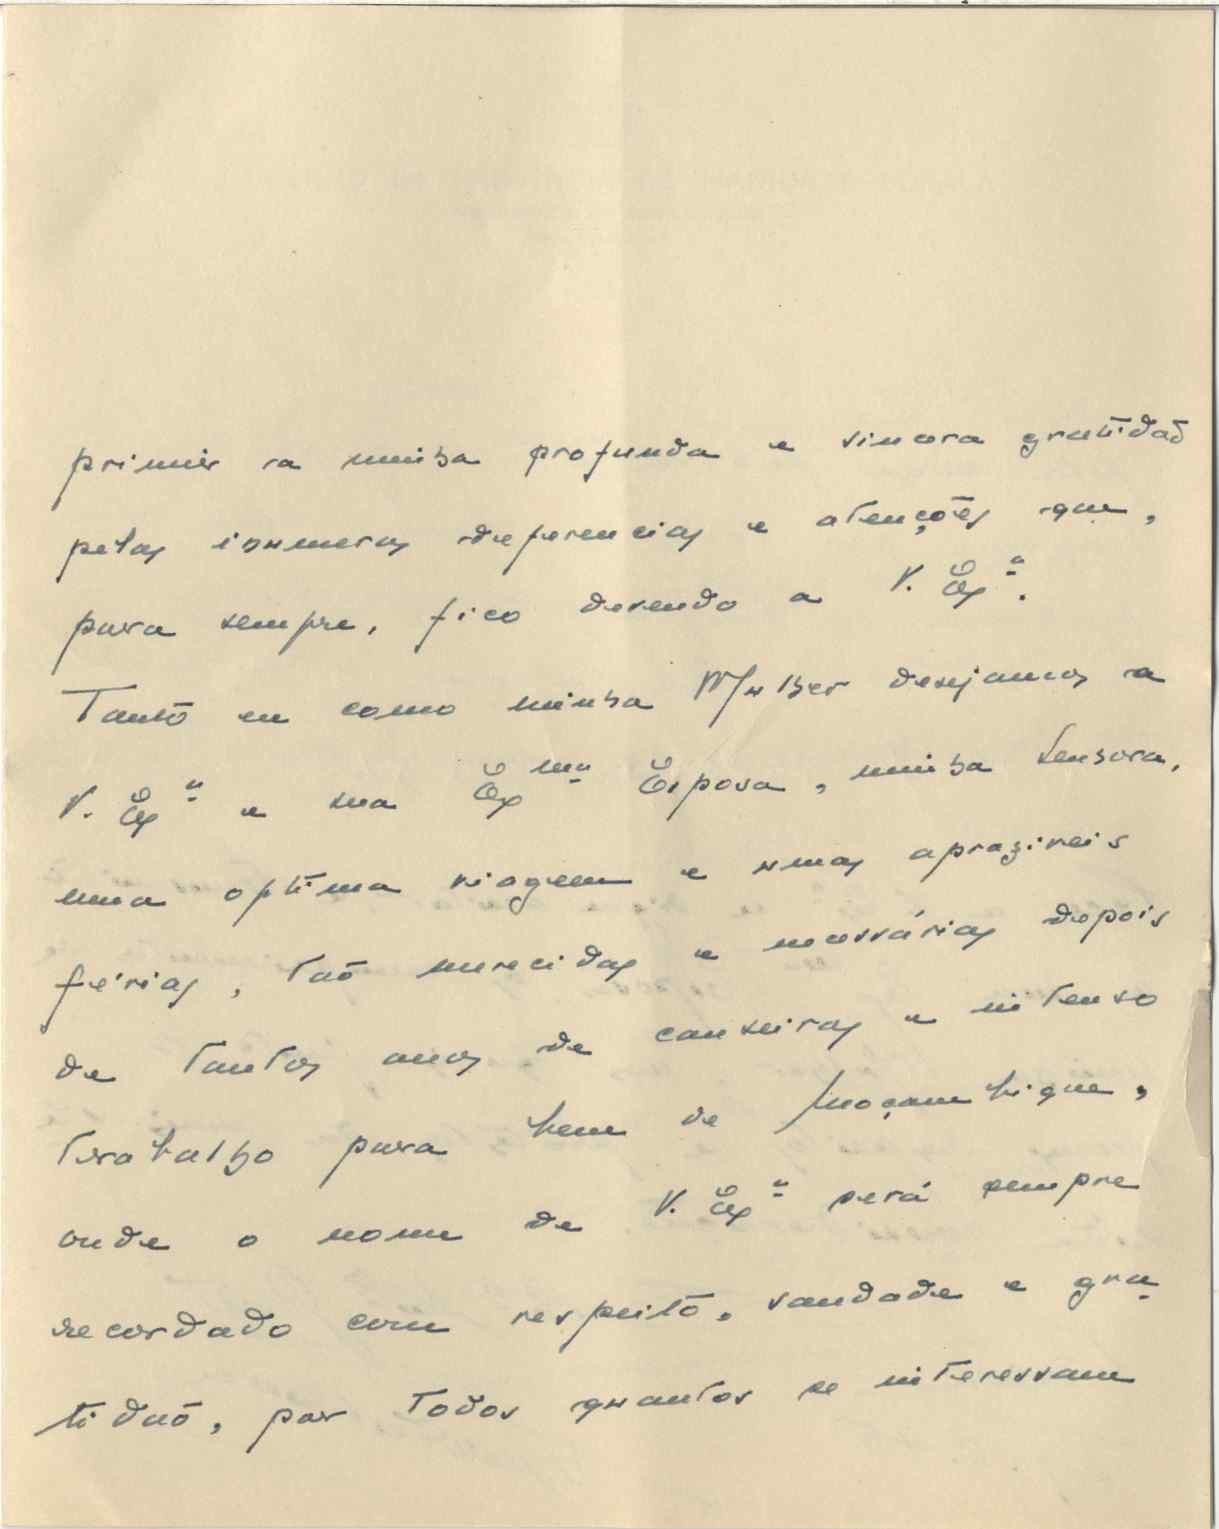 primir a minha profunda e sincera gratidão
pelas inumeras deferencias e atenções que,
para sempre, fico devendo a V. Exª.
Tanto eu como minha Mulher desejamos a
V. Exª e sua Exmª Esposa, minha Senhora,
uma optima viagem e umas apraziveis
férias, tão merecidas e necessárias depois
de tantos anos de canseiras e intenso
trabalho para bem de Moçambique,
onde o nome de V. Exª será sempre
recordado com respeito, saudade e gra-
tidão, por todos quantos se interessam